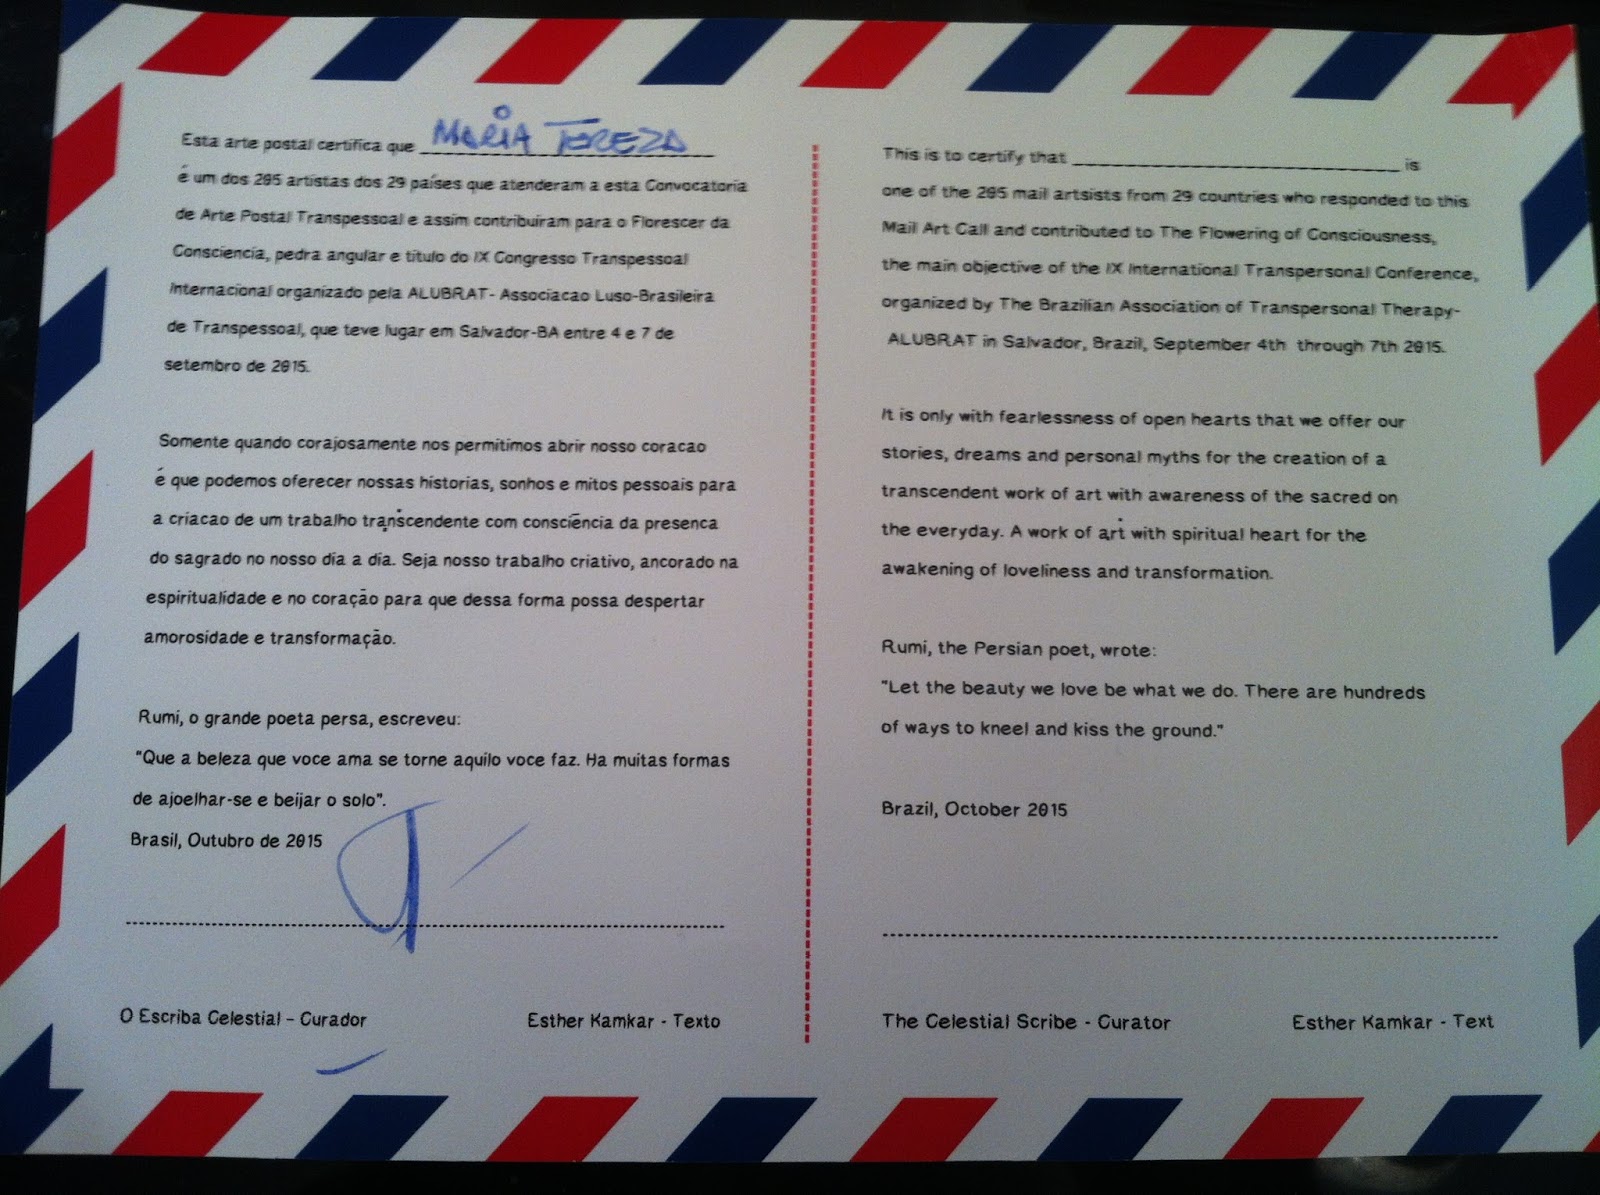 Esta arte postal certifica que MARIA TEREZA
é um dos 205 artistas dos 29 países que atenderam a esta Convocatoria
de Arte Postal Transpessoal e assim contribuíram para o Florescer da
Consciencia, pedra angular e título do IX Congresso Transpessoal
Internacional organizado pela ALUBRAT- Associacao Luso-Brasileira
de Transpessoal, que teve lugar em Salvador-BA entre 4 e 7 de
setembro de 2015.
Somente quando corajosamente nos permitimos abrir nosso coracao
é que podemos oferecer nossas historias, sonhos e mitos pessoais para
a criacao de um trabalho transcendente com consciência da presenca
do sagrado no nosso dia a dia. Seja nosso trabalho criativo, ancorado na
espiritualidade e no coração para que dessa forma possa despertar
amorosidade e transformação.
Rumi, o grande poeta persa, escreveu:
"Que a beleza que voce ama se torne aquilo voce faz. Ha muitas formas
de ajoelhar-se e beijar o solo".
Brasil, Outubro de 2015
O Escriba Celestial - Curador
Esther Kamkar - Texto
This is to certify that ______________________________ is
one of the 205 mail artsists from 29 countries who responded to this
Mail Art Call and contributed to The Flowering of Consciousness,
the main objective of the IX International Transpersonal Conference,
organized by The Brazilian Association of Transpersonal Therapy-
ALUBRAT in Salvador, Brazil, September 4th through 7th 2015.
It is only with fearlessness of open hearts that we offer our
stories, dreams and personal myths for the creation of a
transcendent work of art with awareness of the sacred on
the everyday. A work of art with spiritual heart for the
awakening of loveliness and transformation.
Rumi, the Persian poet, wrote:
"Let the beauty we love be what we do. There are hundreds
of ways to kneel and kiss the ground."
Brazil, October 2015
The Celestial Scribe - Curator
Esther Kamkar - Text